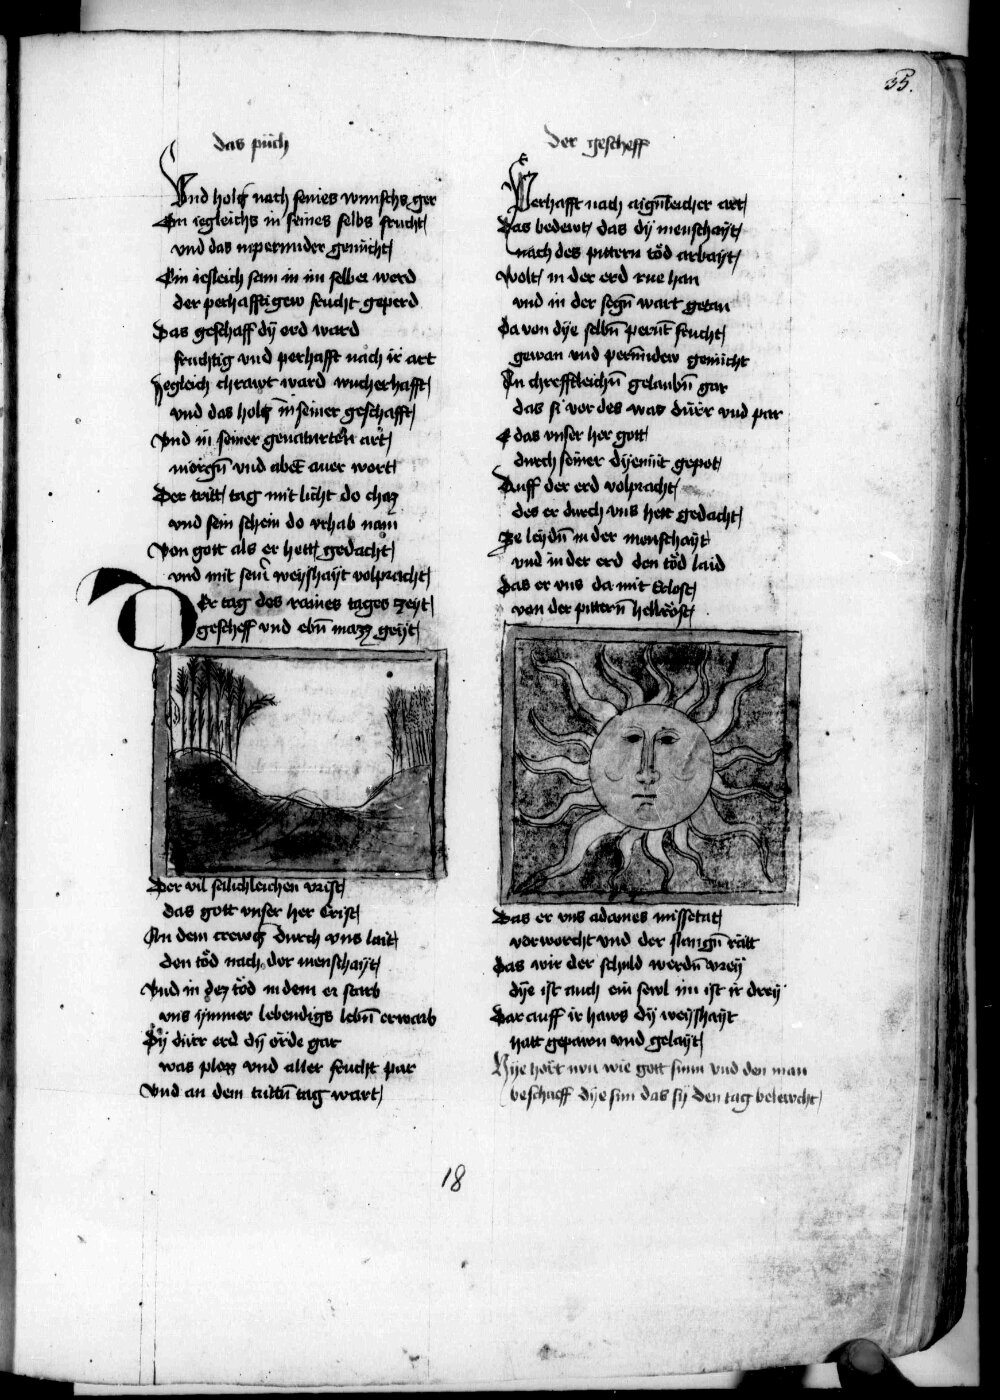 35.
das püch
Vnd holtz nach seines wunschs ger
Ein iegleichs in seines selbs frucht
vnd das inperunder genücht
Ein iesleich sam in im selber werd
der perhafftigew frucht geperd
Das geschaff dÿ erd ward
fruchtig vnd perhafft nach ir art
Yegleich chrawt ward wucherhafft
vnd das holtz in seiner geschafft
Vnd in seiner genaturten art
morgn̄ vnd abent auer wort
Der tritt tag mit licht do cham
vnd sein schein do vrhab nam
Von gott als er hett gedacht
vnd mit seinr weyshaÿt volpracht
Der tag des raines tages zeyt
gescheff vnd ebn̄ mazz geÿt
Der vil salichleichen vrist
das gott vnser her Crist
An dem crewtz durch vns lait
den töd nach der menschaÿt
Vnd in dez töd in dem er starb
vns ÿmmer lebendigs lebn̄ erwarb
Dÿ dürr erd dÿ örde gar
was plozz vnd aller frucht par
Vnd an dem trittn̄ tag wart
der gescheff
Perhafft nach aign̄leicher art
Das bedewt das dÿ menschaÿt
nach des pittern töd arbaÿt
Wolt in der erd rue han
vnd in der segn̄ wart getan
Da von dÿe selbn̄ perūt frucht
gewan vnd perūndew genücht
An chrefftleichn̄ gelaubn̄ gar
das si vor des was dürr vnd par
E das vnser her gott
durch seiner dÿemüt gepot
Auff der erd volpracht
des er durch vns hett gedacht
Ze leÿdn̄ in der menschaÿt
vnd in der erd den töd laid
Das er vns da mit erlost
von der pittern̄ hellröst
Das er vns adames missetat
verworcht vnd der slangn̄ rätt
Das wir der schuld werdn̄ vreÿ
dÿe ist auch ein sewl im ist ir dreÿ
Dar auff ir haws dÿ weÿshaÿt
hatt gepawn vnd gelaÿt
Hÿe hört nvn wie gott sunn vnd den man
beschaff dÿe sun das sÿ den tag belewcht
18